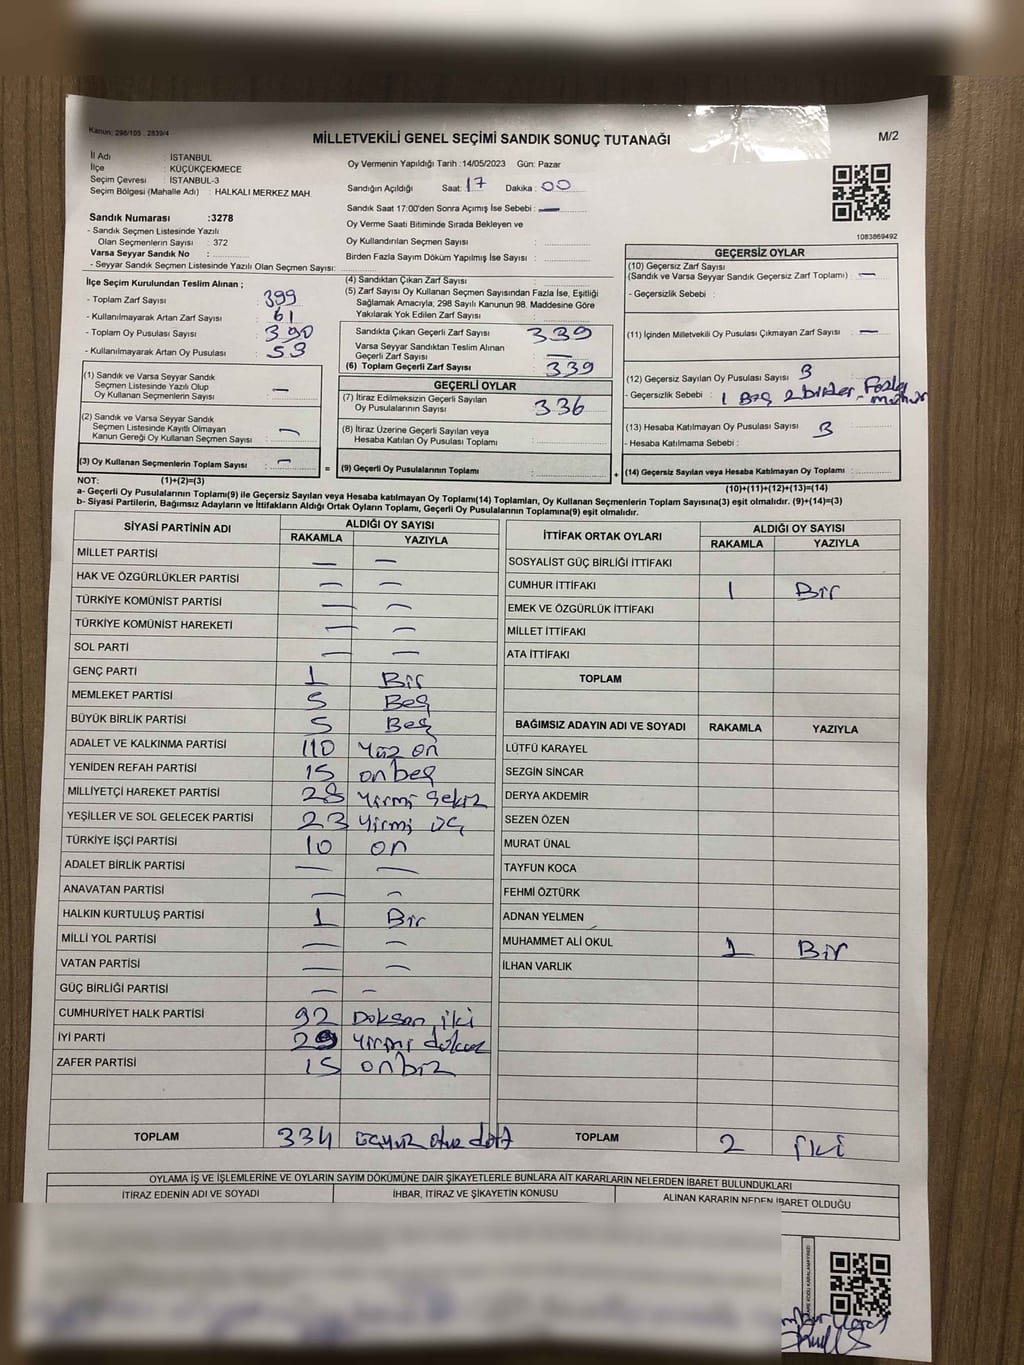 Kanun: 298/105 . 2839/4
MİLLETVEKİLİ GENEL SEÇİMİ SANDIK SONUÇ TUTANAĞI
M/2
İl Adı : İSTANBUL
İlçe : KÜÇÜKÇEKMECE
Seçim Çevresi : İSTANBUL-3
Seçim Bölgesi (Mahalle Adı) : HALKALI MERKEZ MAH.
Oy Vermenin Yapıldığı Tarih : 14/05/2023 Gün: Pazar
Sandığın Açıldığı Saat: 17 Dakika : 00
Sandık Saat 17:00'den Sonra Açımış İse Sebebi : —
Oy Verme Saati Bitiminde Sırada Bekleyen ve
Oy Kullandırılan Seçmen Sayısı :
Birden Fazla Sayım Döküm Yapılmış İse Sayısı :
1083869492
Sandık Numarası :3278
- Sandık Seçmen Listesinde Yazılı
Olan Seçmenlerin Sayısı : 372
Varsa Seyyar Sandık No :
- Seyyar Sandık Seçmen Listesinde Yazılı Olan Seçmen Sayısı:
İlçe Seçim Kurulundan Teslim Alınan ;
- Toplam Zarf Sayısı : 399
- Kullanılmayarak Artan Zarf Sayısı : 61
- Toplam Oy Pusulası Sayısı : 390
- Kullanılmayarak Artan Oy Pusulası : 53
(1) Sandık ve Varsa Seyyar Sandık
Seçmen Listesinde Yazılı Olup
Oy Kullanan Seçmenlerin Sayısı : —
(2) Sandık ve Varsa Seyyar Sandık
Seçmen Listesinde Kayıtlı Olmayan
Kanun Gereği Oy Kullanan Seçmen Sayısı : —
(3) Oy Kullanan Seçmenlerin Toplam Sayısı : —
(4) Sandıktan Çıkan Zarf Sayısı :
(5) Zarf Sayısı Oy Kullanan Seçmen Sayısından Fazla İse, Eşitliği
Sağlamak Amacıyla, 298 Sayılı Kanunun 98. Maddesine Göre
Yakılarak Yok Edilen Zarf Sayısı :
Sandıkta Çıkan Geçerli Zarf Sayısı : 339
Varsa Seyyar Sandıktan Teslim Alınan
Geçerli Zarf Sayısı : —
(6) Toplam Geçerli Zarf Sayısı : 339
GEÇERLİ OYLAR
(7) İtiraz Edilmeksizin Geçerli Sayılan
Oy Pusulalarının Sayısı : 336
(8) İtiraz Üzerine Geçerli Sayılan veya
Hesaba Katılan Oy Pusulası Toplamı :
= (9) Geçerli Oy Pusulalarının Toplamı :
GEÇERSİZ OYLAR
(10) Geçersiz Zarf Sayısı
(Sandık ve Varsa Seyyar Sandık Geçersiz Zarf Toplamı) : —
- Geçersizlik Sebebi :
(11) İçinden Milletvekili Oy Pusulası Çıkmayan Zarf Sayısı : —
(12) Geçersiz Sayılan Oy Pusulası Sayısı : 3
- Geçersizlik Sebebi : 1 Boş 2 birden Fazla mühür
(13) Hesaba Katılmayan Oy Pusulası Sayısı : 3
- Hesaba Katılmama Sebebi :
+ (14) Geçersiz Sayılan veya Hesaba Katılmayan Oy Toplamı :
NOT: (1)+(2)=(3)
(10)+(11)+(12)+(13)=(14)
a- Geçerli Oy Pusulalarının Toplamı(9) ile Geçersiz Sayılan veya Hesaba katılmayan Oy Toplamı(14) Toplamları, Oy Kullanan Seçmenlerin Toplam Sayısına(3) eşit olmalıdır. (9)+(14)=(3)
b- Siyasi Partilerin, Bağımsız Adayların ve İttifakların Aldığı Ortak Oyların Toplamı, Geçerli Oy Pusulalarının Toplamına(9) eşit olmalıdır.
SİYASİ PARTİNİN ADI
ALDIĞI OY SAYISI
RAKAMLA YAZIYLA
MİLLET PARTİSİ — —
HAK VE ÖZGÜRLÜKLER PARTİSİ — —
TÜRKİYE KOMÜNİST PARTİSİ — —
TÜRKİYE KOMÜNİST HAREKETİ — —
SOL PARTİ — —
GENÇ PARTİ 1 Bir
MEMLEKET PARTİSİ 5 Beş
BÜYÜK BİRLİK PARTİSİ 5 Beş
ADALET VE KALKINMA PARTİSİ 110 Yüz on
YENİDEN REFAH PARTİSİ 15 onbeş
MİLLİYETÇİ HAREKET PARTİSİ 28 Yirmi sekiz
YEŞİLLER VE SOL GELECEK PARTİSİ 23 Yirmi üç
TÜRKİYE İŞÇİ PARTİSİ 10 on
ADALET BİRLİK PARTİSİ — —
ANAVATAN PARTİSİ — —
HALKIN KURTULUŞ PARTİSİ 1 Bir
MİLLİ YOL PARTİSİ — —
VATAN PARTİSİ — —
GÜÇ BİRLİĞİ PARTİSİ — —
CUMHURİYET HALK PARTİSİ 92 Doksan iki
İYİ PARTİ 29 Yirmi dokuz
ZAFER PARTİSİ 15
TOPLAM 334 üçyüz otuz dört
İTTİFAK ORTAK OYLARI
ALDIĞI OY SAYISI
RAKAMLA YAZIYLA
SOSYALİST GÜÇ BİRLİĞİ İTTİFAKI
CUMHUR İTTİFAKI 1 Bir
EMEK VE ÖZGÜRLÜK İTTİFAKI
MİLLET İTTİFAKI
ATA İTTİFAKI
TOPLAM
BAĞIMSIZ ADAYIN ADI VE SOYADI RAKAMLA YAZIYLA
LÜTFÜ KARAYEL
SEZGİN SİNCAR
DERYA AKDEMİR
SEZEN ÖZEN
MURAT ÜNAL
TAYFUN KOCA
FEHMİ ÖZTÜRK
ADNAN YELMEN
MUHAMMET ALİ OKUL 1 Bir
İLHAN VARLIK
TOPLAM 2 iki
OYLAMA İŞ VE İŞLEMLERİNE VE OYLARIN SAYIM DÖKÜMÜNE DAİR ŞİKAYETLERLE BUNLARA AİT KARARLARIN NELERDEN İBARET BULUNDUKLARI
İTİRAZ EDENİN ADI VE SOYADI
İHBAR, İTİRAZ VE ŞİKAYETİN KONUSU
ALINAN KARARIN NEDEN İBARET OLDUĞU
KODU KARALAMAYINIZ!